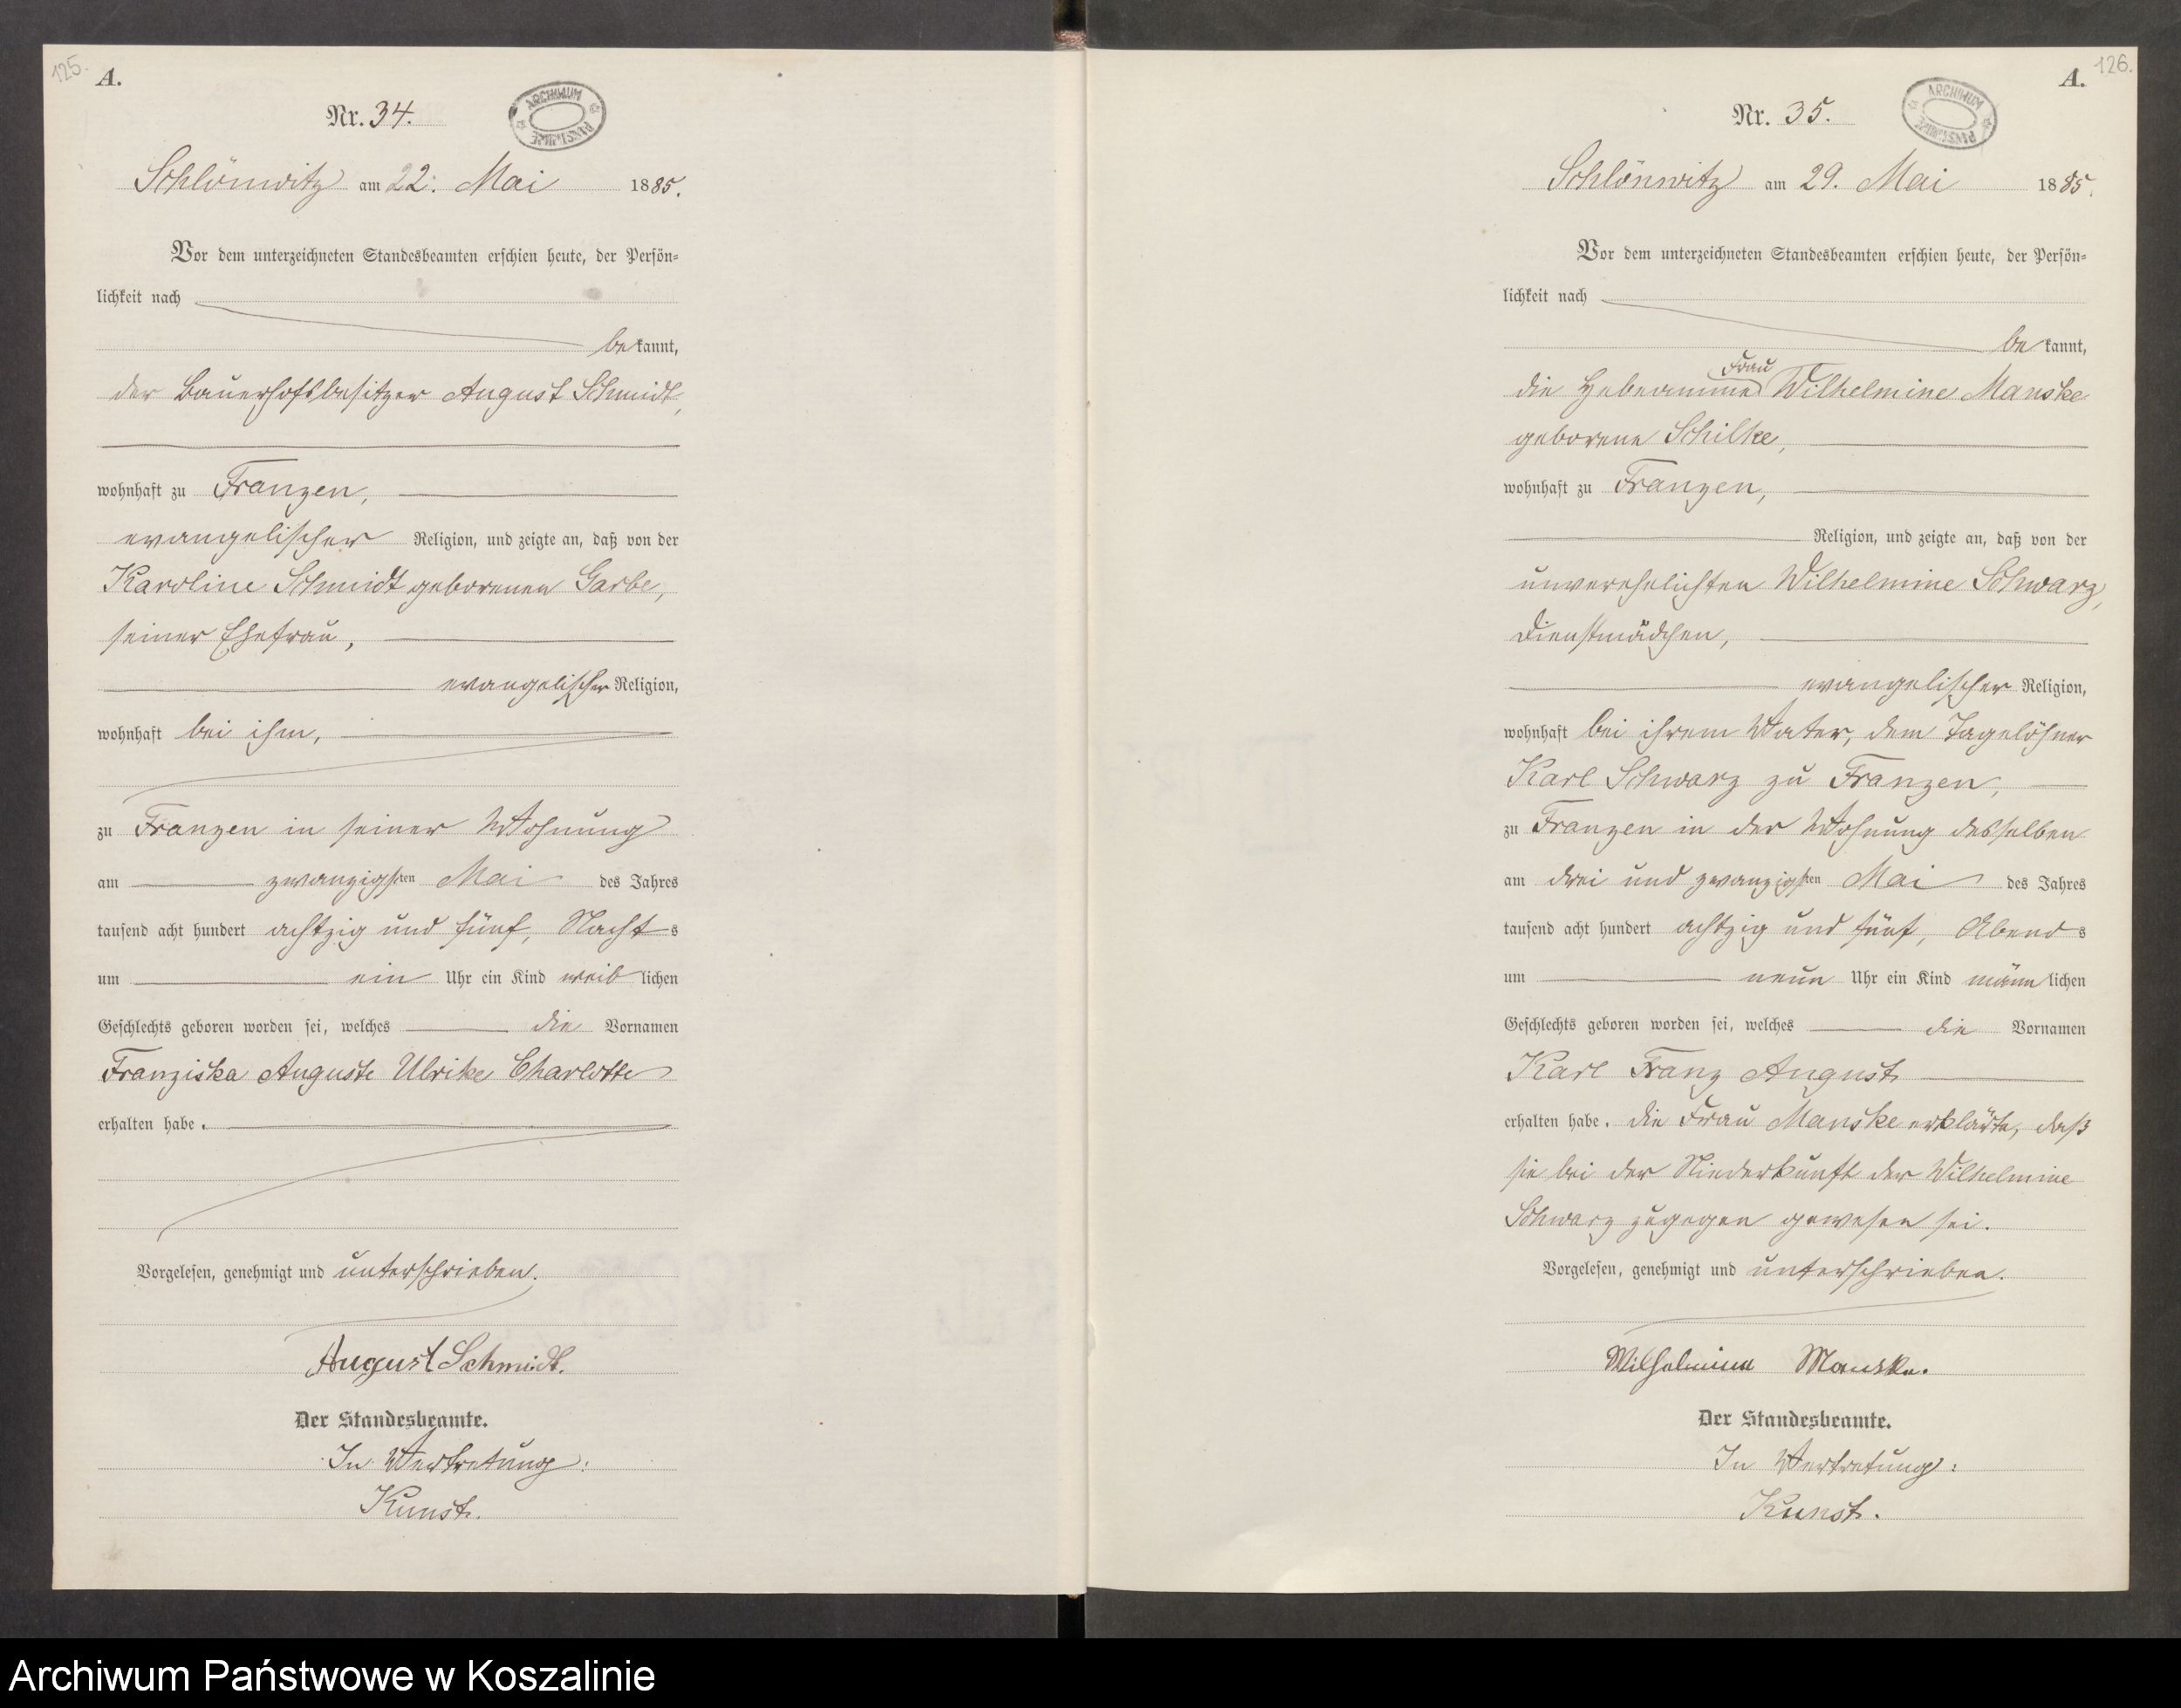 125.
A.
Nr. 34.
ARCHIWUM PAŃSTWOWE
Schlönwitz am 22. Mai 1885.
Vor dem unterzeichneten Standesbeamten erschien heute, der Persön-
lichkeit nach
bekannt,
der Bauerhofsbesitzer August Schmidt,
wohnhaft zu Franzen,
evangelischer Religion, und zeigte an, daß von der
Karoline Schmidt geborenen Garbe,
seiner Ehefrau,
evangelischer Religion,
wohnhaft bei ihm,
zu Franzen in seiner Wohnung
am zwanzigsten Mai des Jahres
tausend acht hundert achtzig und fünf, Nachts
um ein Uhr ein Kind weiblichen
Geschlechts geboren worden sei, welches die Vornamen
Franziska Auguste Ulrike Charlotte
erhalten habe.
Vorgelesen, genehmigt und unterschrieben.
August Schmidt.
Der Standesbeamte.
In Vertretung:
Kunst.
126.
A.
Nr. 35.
ARCHIWUM PAŃSTWOWE
Schlönwitz am 29. Mai 1885.
Vor dem unterzeichneten Standesbeamten erschien heute, der Persön-
lichkeit nach
bekannt,
die Hebeamme Frau Wilhelmine Manske
geborene Schilke,
wohnhaft zu Franzen,
Religion, und zeigte an, daß von der
unverehelichten Wilhelmine Schwarz,
Dienstmädchen,
evangelischer Religion,
wohnhaft bei ihrem Vater, dem Tagelöhner
Karl Schwarz zu Franzen,
zu Franzen in der Wohnung desselben
am drei und zwanzigsten Mai des Jahres
tausend acht hundert achtzig und fünf, Abends
um neun Uhr ein Kind männlichen
Geschlechts geboren worden sei, welches die Vornamen
Karl Franz August
erhalten habe. Die Frau Manske erklärte, daß
sie bei der Niederkunft der Wilhelmine
Schwarz zugegen gewesen sei.
Vorgelesen, genehmigt und unterschrieben.
Wilhelmine Manske.
Der Standesbeamte.
In Vertretung:
Kunst.
Archiwum Państwowe w Koszalinie